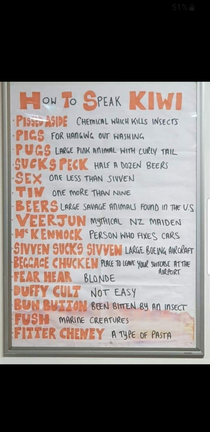 51%
HOW TO SPEAK KIWI
PISSED ASIDE CHEMICAL WHICH KILLS INSECTS
PIGS FOR HANGING OUT WASHING
PUGS LARGE PINK ANIMAL WITH CURLY TAIL
SUCKS PECK HALF A DOZEN BEERS
SEX ONE LESS THAN SIVVEN
TIN ONE MORE THAN NINE
BEERS LARGE SAVAGE ANIMALS FOUND IN THE U.S
VEERJUN MYTHICAL NZ MAIDEN
McKENNOCK PERSON WHO FIXES CARS
SIVVEN SUCKS SIVVEN LARGE BOEING AIRCRAFT
BEGGAGE CHUCKEN PLACE TO LEAVE YOUR SUITCASE AT THE
AIRPORT
FEAR HEAR BLONDE
DUFFY CULT NOT EASY
BUN BUTTON BEEN BITTEN BY AN INSECT
FUSH MARINE CREATURES
FITTER CHENEY A TYPE OF PASTA